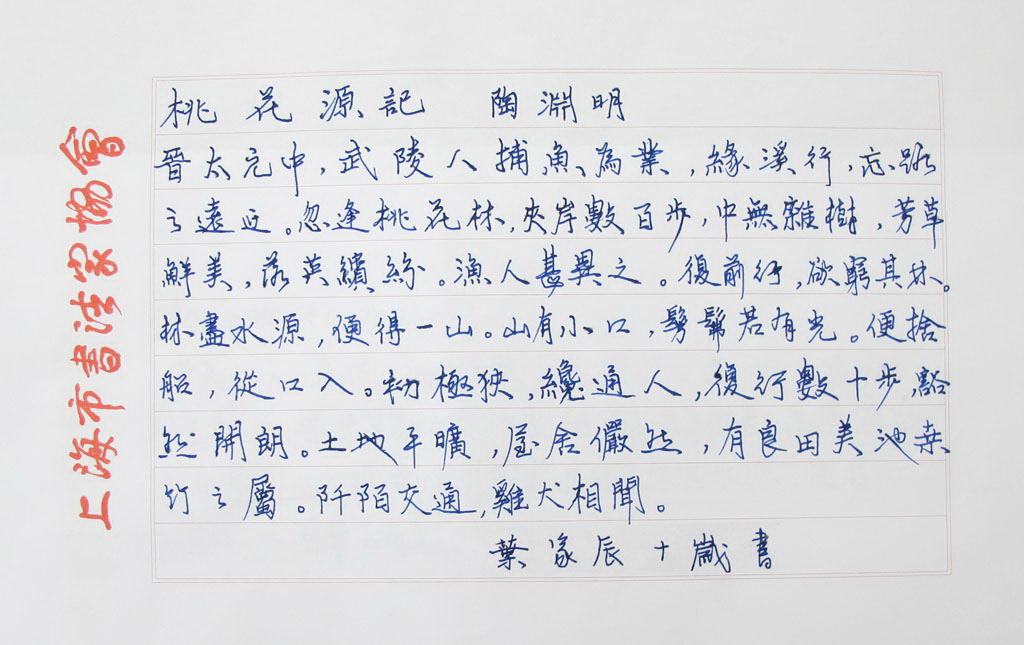 上海市書法家協會
桃花源記 陶淵明
晉太元中，武陵人捕魚為業，緣溪行，忘路
之遠近。忽逢桃花林，夾岸數百步，中無雜樹，芳草
鮮美，落英繽紛。漁人甚異之。復前行，欲窮其林。
林盡水源，便得一山。山有小口，髣髴若有光。便捨
船，從口入。初極狹，纔通人，復行數十步，豁
然開朗。土地平曠，屋舍儼然，有良田美池桑
竹之屬。阡陌交通，雞犬相聞。
葉家辰十歲書